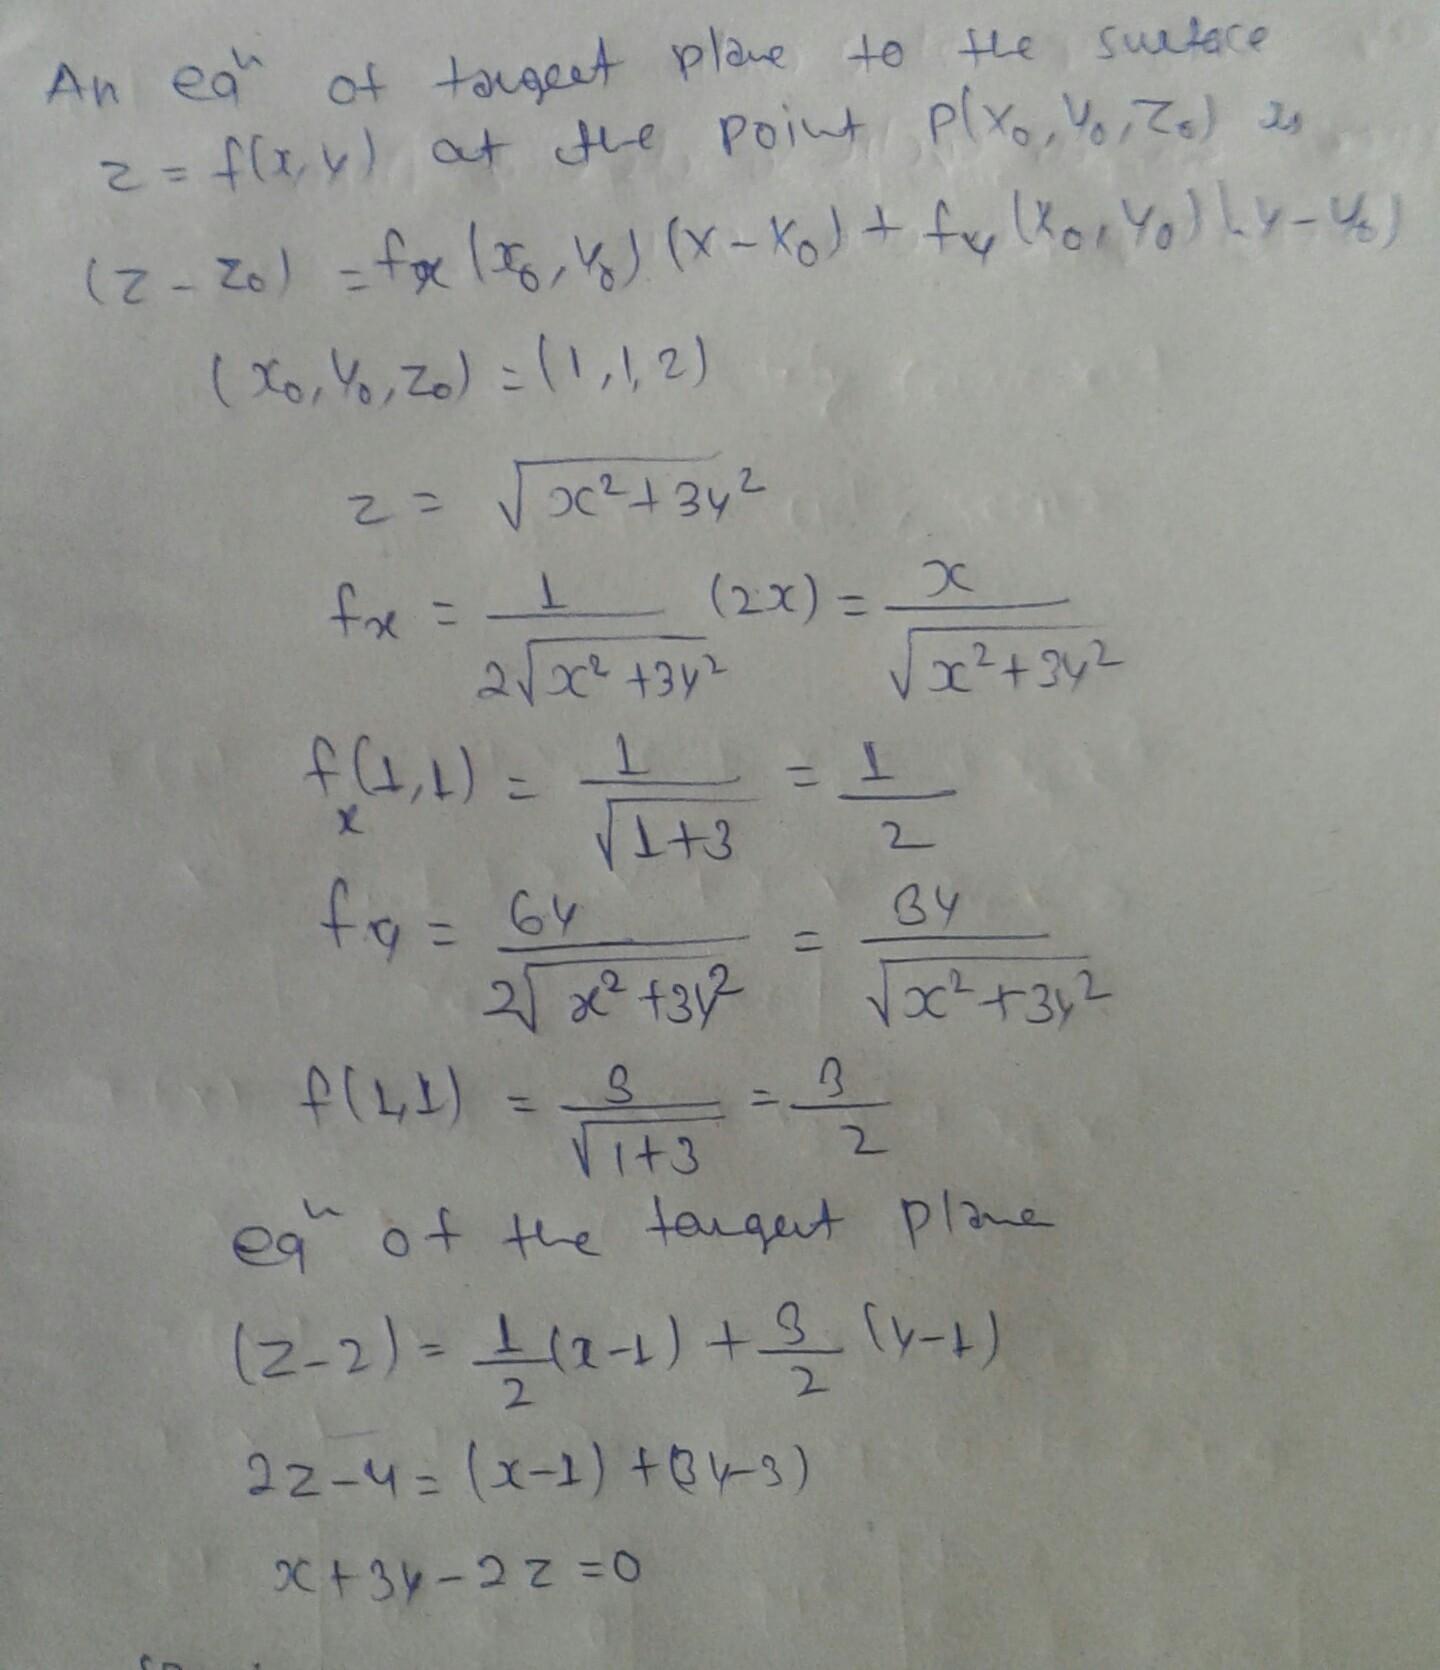 An eqⁿ of tangent plane to the surface
z = f(x, y) at the point P(x₀, y₀, z₀) is
(z - z₀) = fx (x₀, y₀) (x - x₀) + fy (x₀, y₀) (y - y₀)
(x₀, y₀, z₀) = (1, 1, 2)
z = √(x² + 3y²)
fx = 1 / 2√(x² + 3y²) (2x) = x / √(x² + 3y²)
fx(1, 1) = 1 / √(1+3) = 1/2
fy = 6y / 2√(x² + 3y²) = 3y / √(x² + 3y²)
f(1, 1) = 3 / √(1+3) = 3/2
eqⁿ of the tangent plane
(z - 2) = 1/2 (x - 1) + 3/2 (y - 1)
2z - 4 = (x - 1) + (3y - 3)
x + 3y - 2z = 0